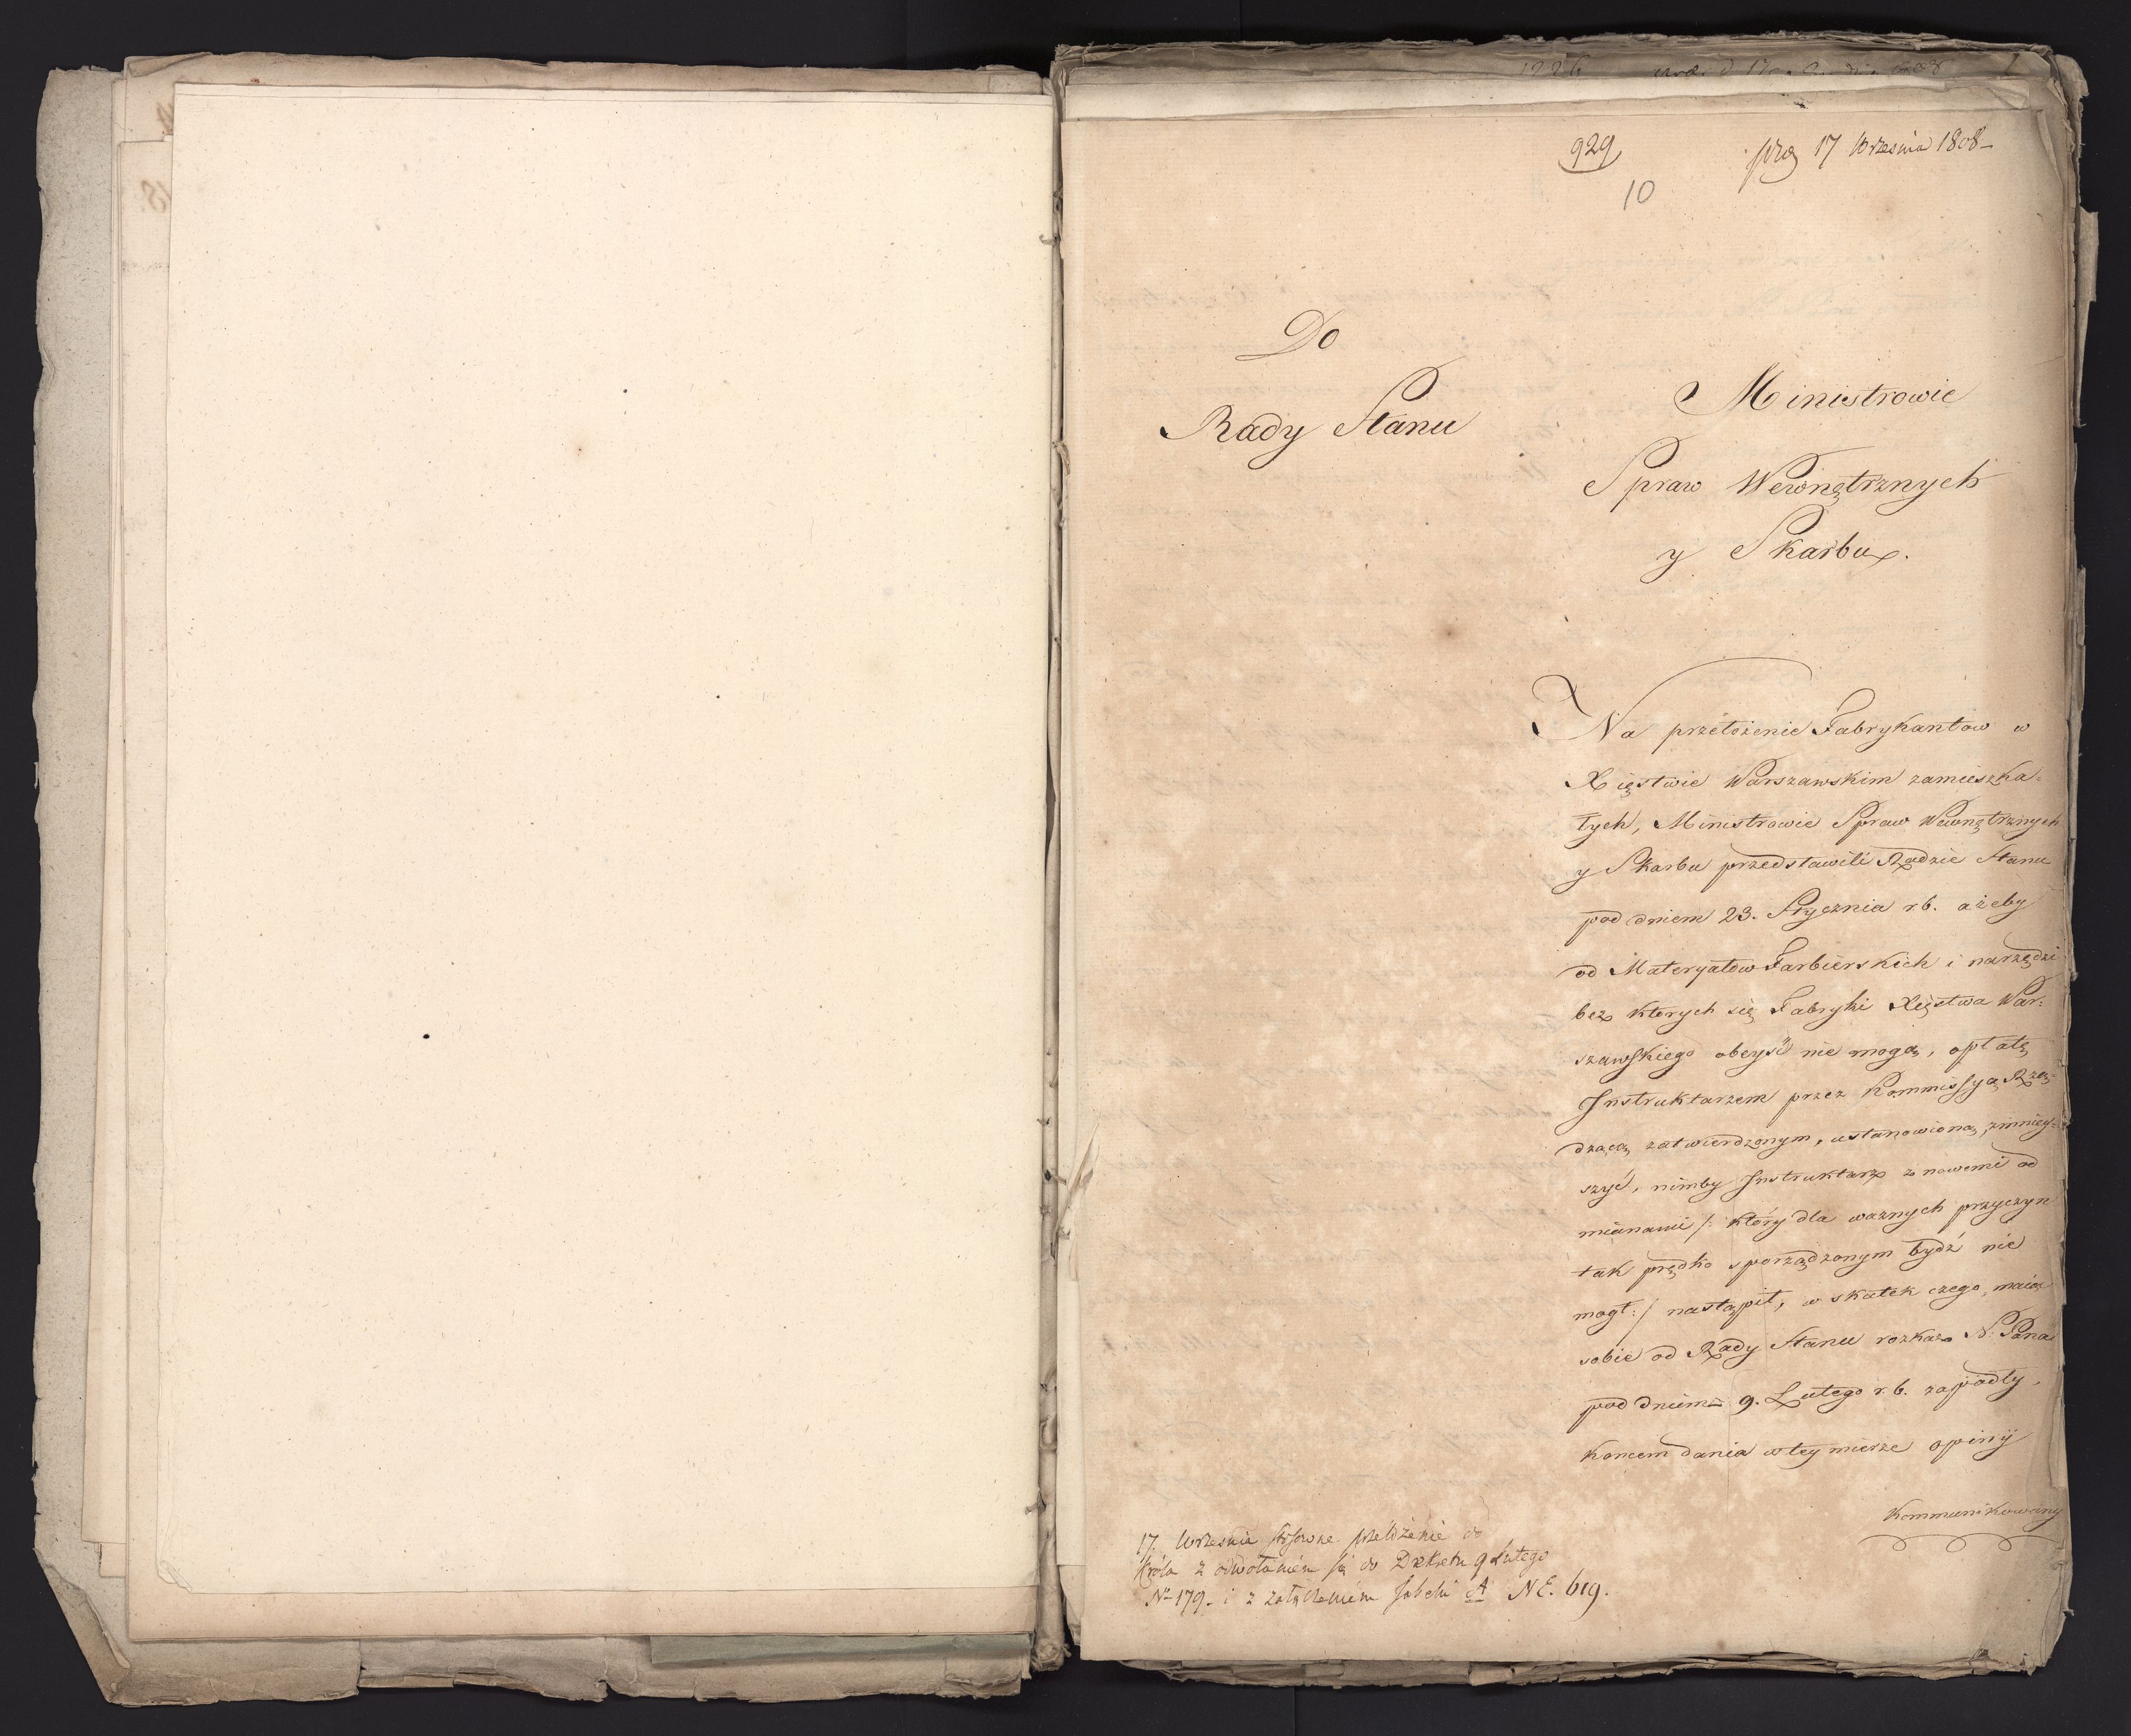 929
prez 17 Września 1808
10
Do
Rady Stanu
Ministrowie
Spraw Wewnętrznych
y Skarbu.
Na przełożenie Fabrykantow w
Xięstwie Warszawskim zamieszka-
łych, Ministrowie Spraw Wewnętrznych
y Skarbu przedstawili Radzie Stanu
pod dniem 23. Stycznia r.b. ażeby
od Materyałow Farbierskich i narzędzi
bez ktorych się Fabryki Xięstwa War:
szawskiego obeysć nie mogą, opłatę
Instruktarzem przez Kommissyą Rzą-
dzącą zatwierdzonym, ustanowioną, zmniey-
szyć, nimby Instruktarz z nowemi od
mianami /: który dla ważnych przyczyn
tak prędko sporządzonym bydź nie
mogł :/ nastąpił, w skutek czego, maiąc
sobie od Rady Stanu rozkaz N. Pana
pod dniem 9. Lutego r.b. zapadły,
koncem dania w tey mierze opinij
kommunikowany
17. Września stosowne przełożenie do
Króla z odwołaniem się do Dekretu 9 Lutego
No 179. i z załączeniem Tabelli A NE. 619.